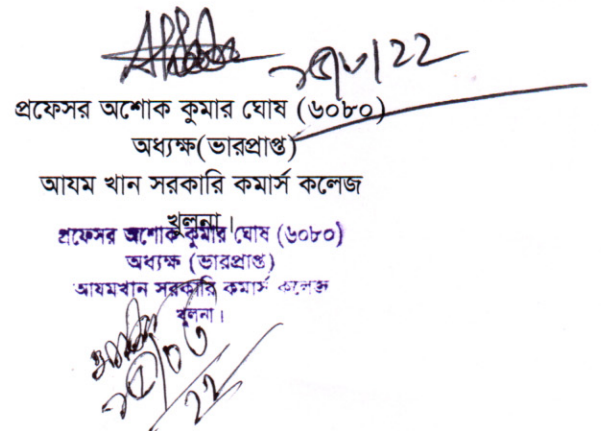 ২৫/৮/22
প্রফেসর অশোক কুমার ঘোষ (৬০৮০)
অধ্যক্ষ(ভারপ্রাপ্ত)
আযম খান সরকারি কমার্স কলেজ
খুলনা।
প্রফেসর অশোক কুমার ঘোষ (৬০৮০)
অধ্যক্ষ (ভারপ্রাপ্ত)
আযমখান সরকারি কমার্স কলেজ
খুলনা।
22